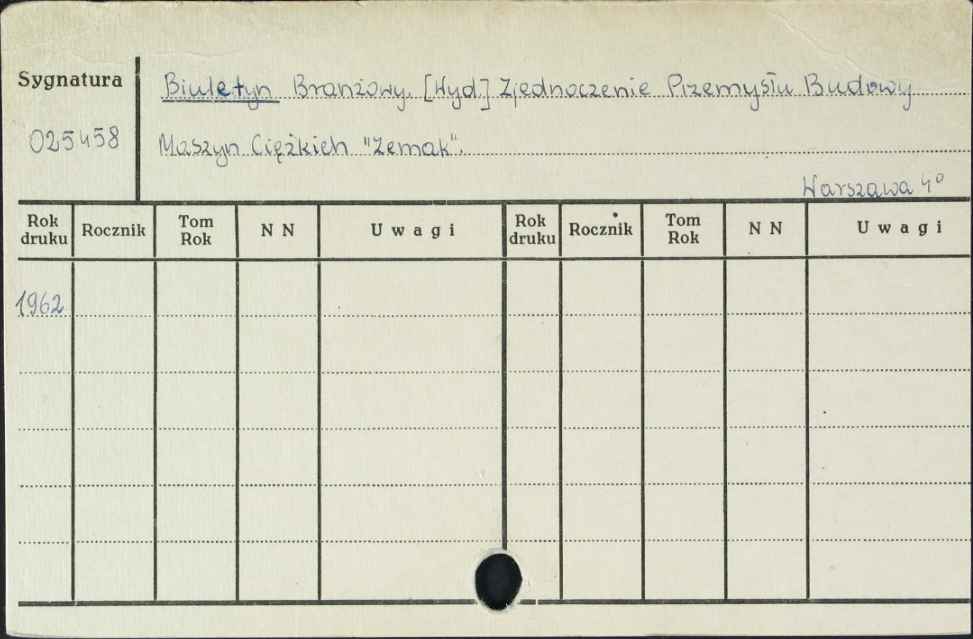 Sygnatura
025458
Biuletyn Branżowy. [Wyd] Zjednoczenie Przemysłu Budowy
Maszyn Ciężkich "Zemak".
Warszawa 4°
Rok druku Rocznik Tom Rok N N Uwagi Rok druku Rocznik Tom Rok N N Uwagi
1962